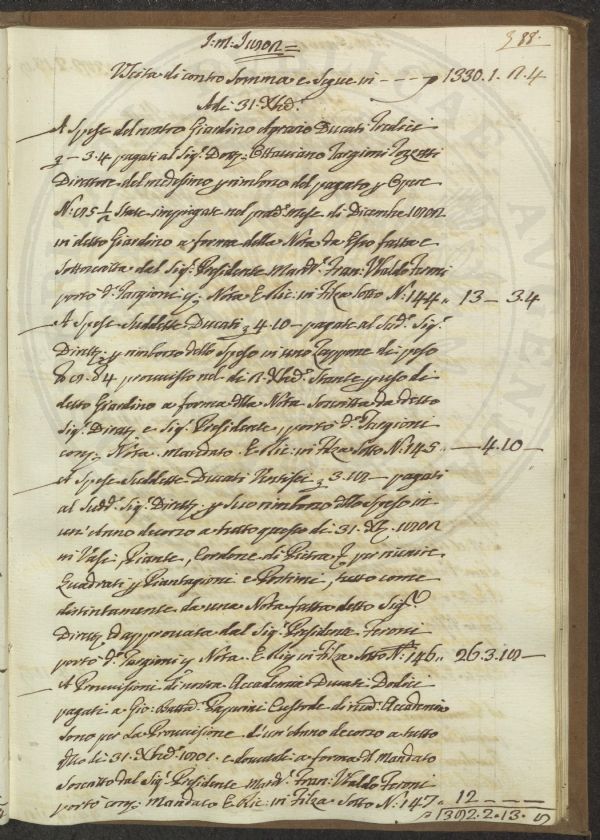 88.
Uscita di contro Somma e Segue in - - - - 1330.1.
Adi 31. Xbre
A Spese del nostro Giardino Agrario Ducati Tredici
3 — 3.4 pagati al Sig. Dott. Ottaviano Targioni Tozzetti
Direttore del medesimo p rimborso del pagato p Opere
N. state impiegate nel pred. mese di Dicembre
in detto Giardino a forma della Nota da Esso fatta e
sottoscritta dal Sig. Presidente March. Fran. Ubaldo Feroni
portò d. Targioni p. Nota E Ric. in Filza Sotto N. 144 " 13 — 3.4
A Spese Suddette Ducati 3 4.10 — pagati al Sud. Sig.
Dirett. p rimborso dello speso in uno Zappone di peso
provvisto nel di Xbre Stante p uso di
detto Giardino a forma della Nota Soscritta da detto
Sig. Dirett. e Sig. Presidente, portò d. Targioni
Nota. mandato E Ric. in Filza Sotto N. 145 " — 4.10 —
A Spese Suddette Ducati Ventisei 3 3. — pagati
al Sudd. Sig. Dirett. p Suo rimborso dello speso in
un' Anno decorso a tutto questo di 31. Xbre
in Vasi, Piante, Cordone di Pietra per riunire
Quadrati p Piantagioni e tutto come
distintamente da una Nota fatta detto Sig.
Dirett. ed approvata dal Sig. Presidente Feroni
portò d. Targioni p Nota. E Ric. in Filza Sotto N. 146 " 26.3.
A Provvisioni di nostra Accademia Ducati Dodici
pagati a Gio: Batta. Custode di nostra Accademia
sono per La Provvisione d'un' Anno decorso a tutto
di 31. Xbre e a forma del Mandato
Soscritto dal Sig. Presidente March. Fran. Ubaldo Feroni
portò Mandato E Ric. in Filza Sotto N. 147 " 12 — — —